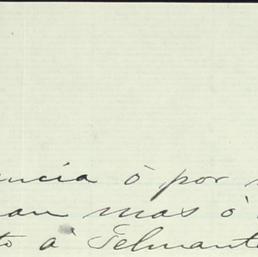 ncia ò por
an mas ó
to á Telmante